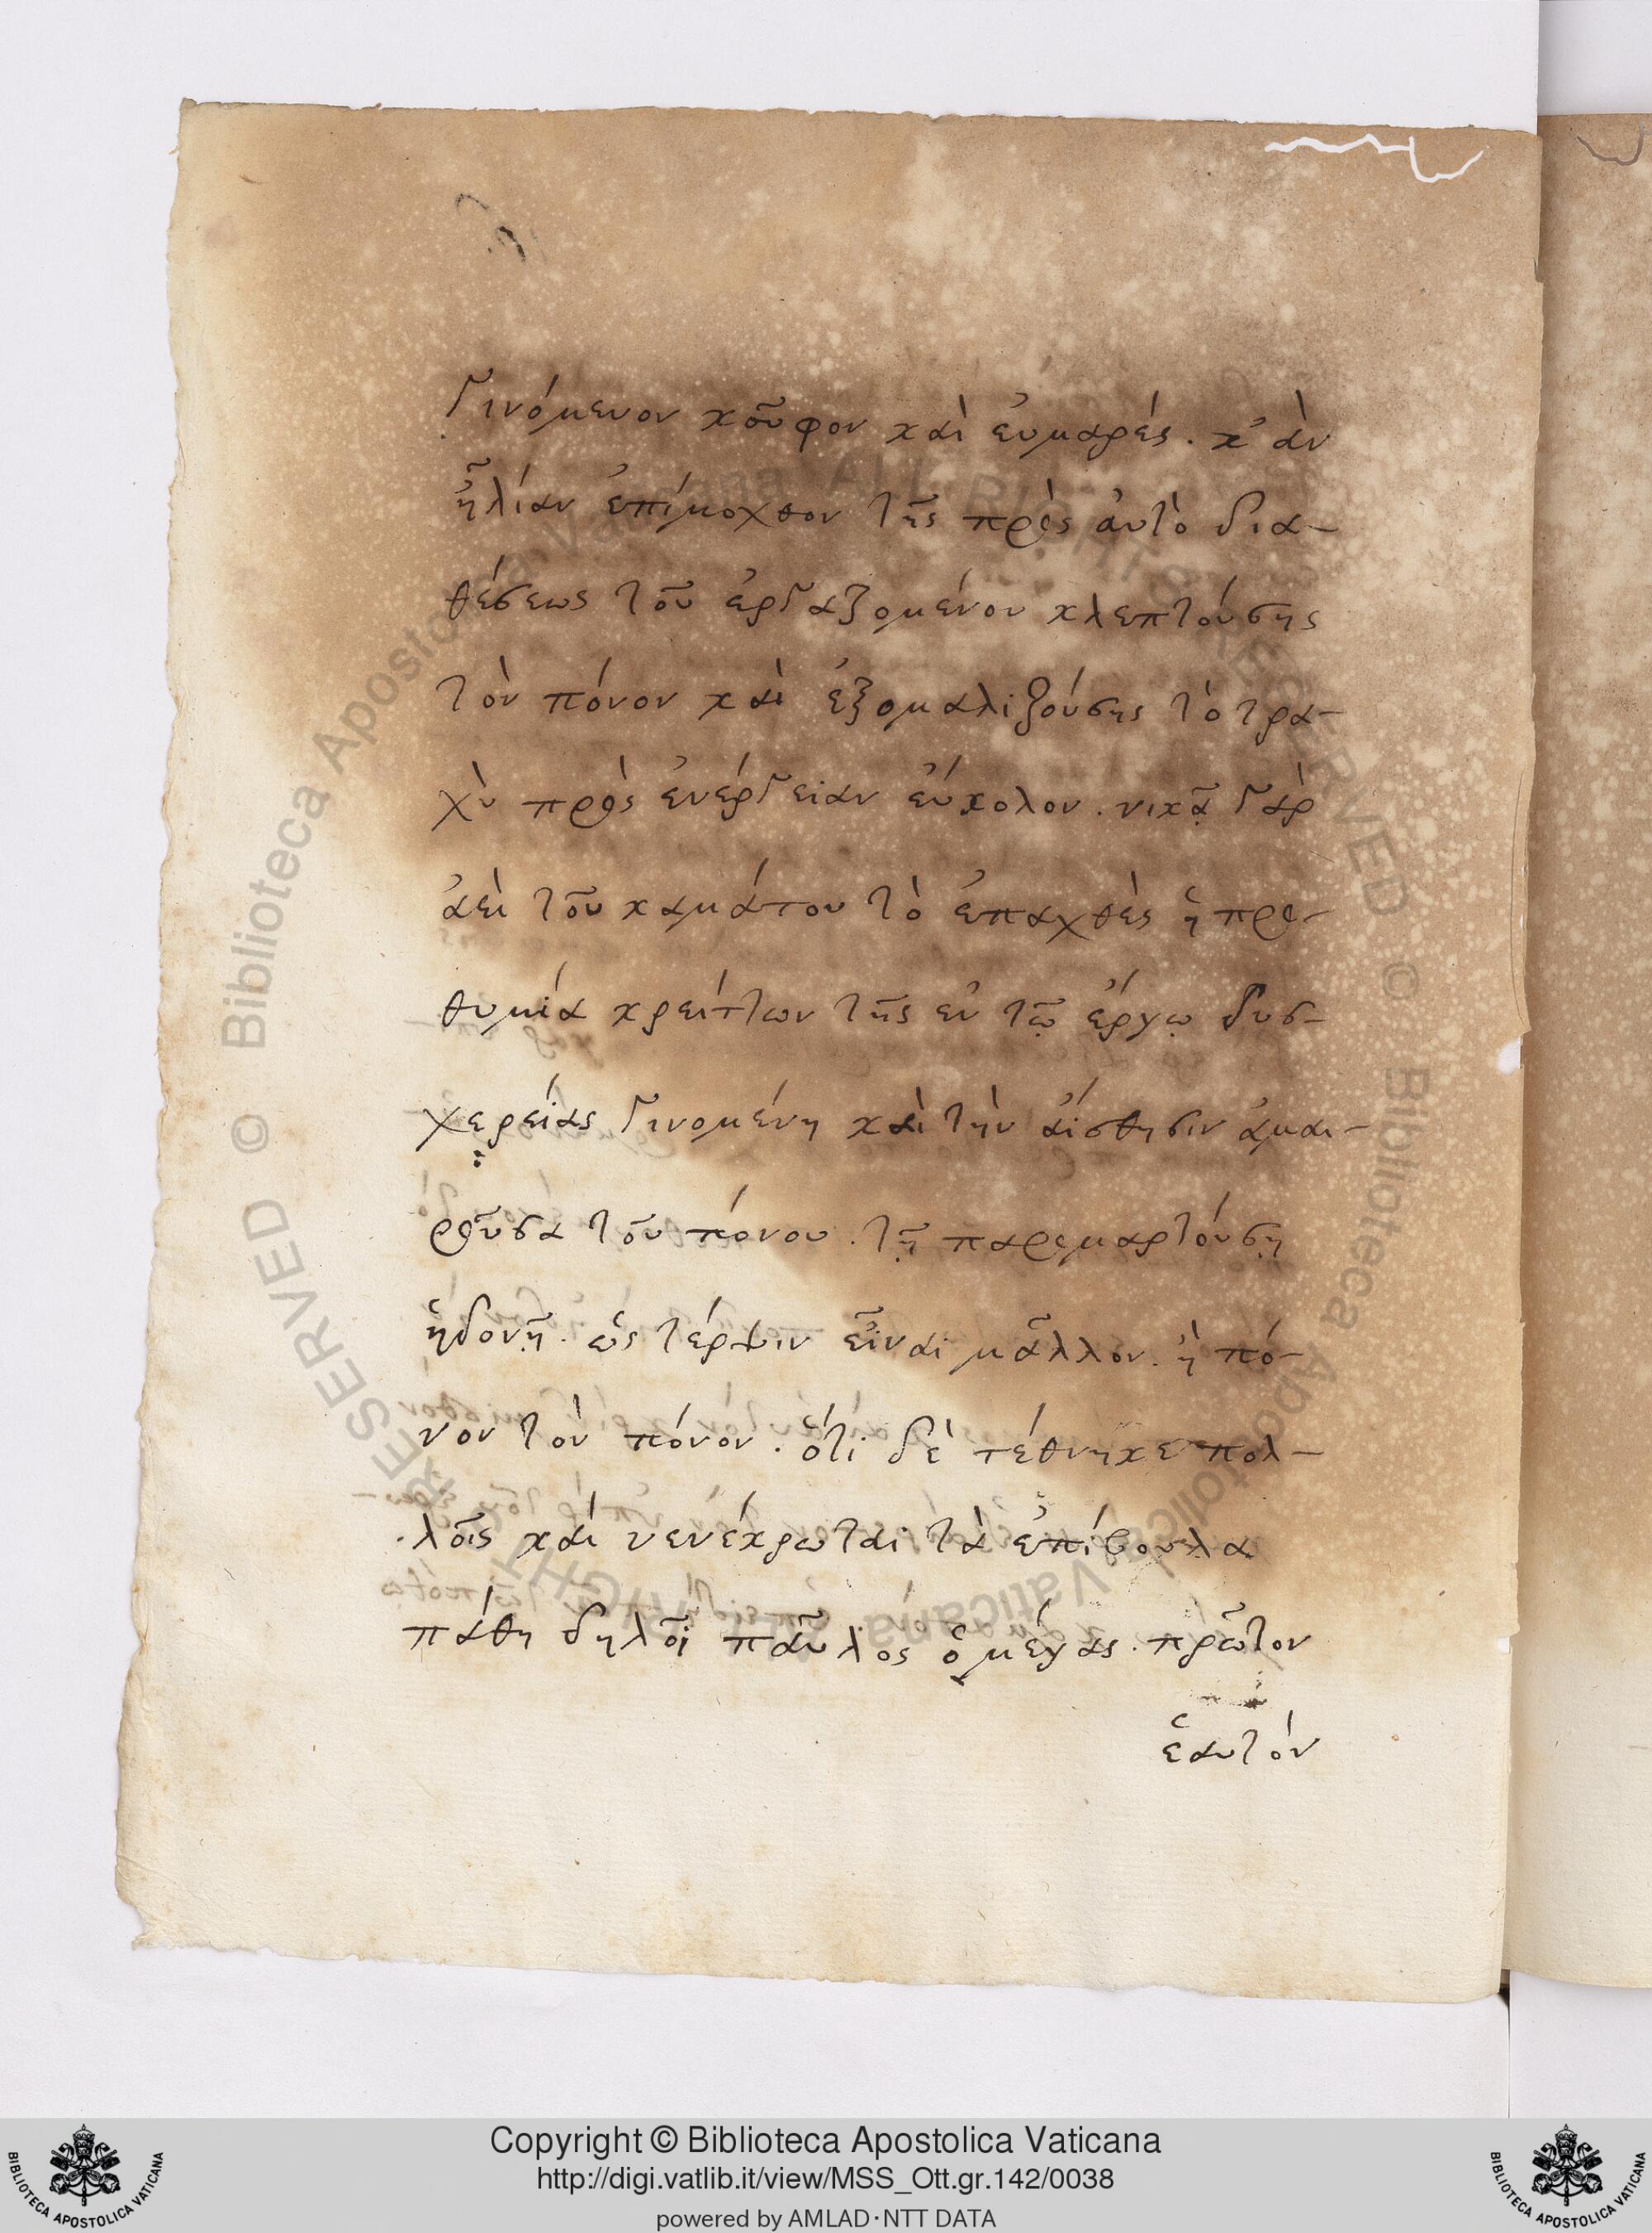 Γινόμενον κοῦφον καὶ ἐυμαρές. κ' ἀν
ἦ λίαν ἐπίμοχθον τῆς πρὸς ἀυτὸ δια-
θέσεως τοῦ ἐργαζομένου κλεπτούσης
τὸν πόνον καὶ ἐξομαλιζούσης τὸ τρα-
χὺ πρὸς ἐνέργειαν ἐύκολον. νικᾷ γὰρ
ἀεὶ τοῦ καμάτου τὸ ἐπαχθὲς ἡ προ-
θυμία κρείττων τῆς ἐν τῷ ἔργῳ δυσ-
χερείας γινομένη καὶ τὴν ἄισθησιν ἀμαι-
ροῦσα τοῦ πόνου. τῇ παρομαρτούσῃ
ἡδονῇ. ὡς τέρψιν εἶναι μᾶλλον. ἢ πό-
νον τὸν πόνον. ὅτι δὲ τέθνηκε πολ-
λοῖς καὶ νενέκρωται τὰ ἐπίβουλα
πάθη δηλοῖ παῦλος ὁ μέγας. πρῶτον
ἑαυτόν
Copyright © Biblioteca Apostolica Vaticana
http://digi.vatlib.it/view/MSS_Ott.gr.142/0038
powered by AMLAD·NTT DATA
BIBLIOTECA APOSTOLICA VATICANA
BIBLIOTECA APOSTOLICA VATICANA